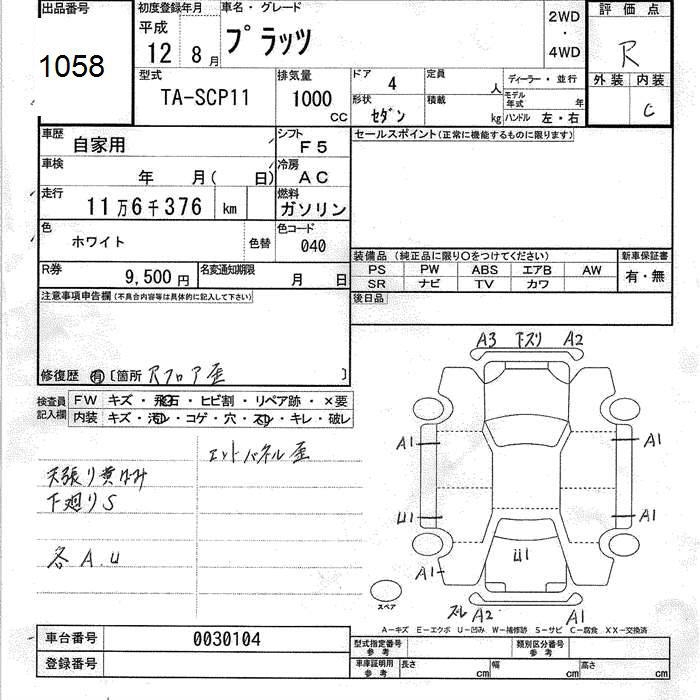 出品番号
1058
初度登録年月
平成
12 8月
車名・グレード
プラッツ
2WD
・
4WD
評価点
R
外装 内装
C
型式
TA-SCP11
排気量
1000
CC
ドア 4
定員 人
ディーラー・並行
形状
セダン
積載 kg
モデル年式 年
ハンドル 左・右
車歴 自家用
シフト F5
車検 年 月( 日)
冷房 AC
走行 11万6千376 km
燃料 ガソリン
色 ホワイト 色替
色コード 040
R券 9,500円
名変通知期限 月 日
セールスポイント(正常に機能するものに限ります)
装備品 (純正品に限り○をつけてください)
新車保証書
PS PW ABS エアB AW
有・無
SR ナビ TV カワ
後日品
注意事項申告欄(不具合内容等は具体的に記入して下さい)
修復歴 有 [箇所 Rフロア歪 ]
検査員記入欄
FW キズ・飛石・ヒビ割・リペア跡・×要
内装 キズ・汚れ・コゲ・穴・スレ・キレ・破レ
エンドパネル歪
天張り黄ばみ
下廻りS
各A.U
A3 下スリ A2
A1 A1
U1 A1
A1 U1
スレ A2 A1
スペア
A-キズ E-エクボ U-凹み W-補修跡 S-サビ C-腐食 XX-交換済
車台番号 0030104
登録番号
型式指定番号 参考
類別区分番号 参考
車庫証明用 参考 長さ cm 幅 cm 高さ cm